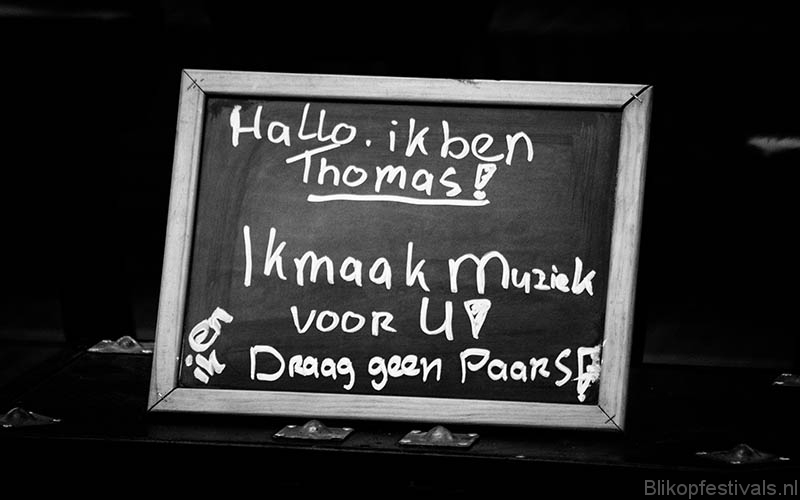 Hallo. ik ben
Thomas!
Ik maak muziek
voor U!
Draag geen Paars!
Blikopfestivals.nl